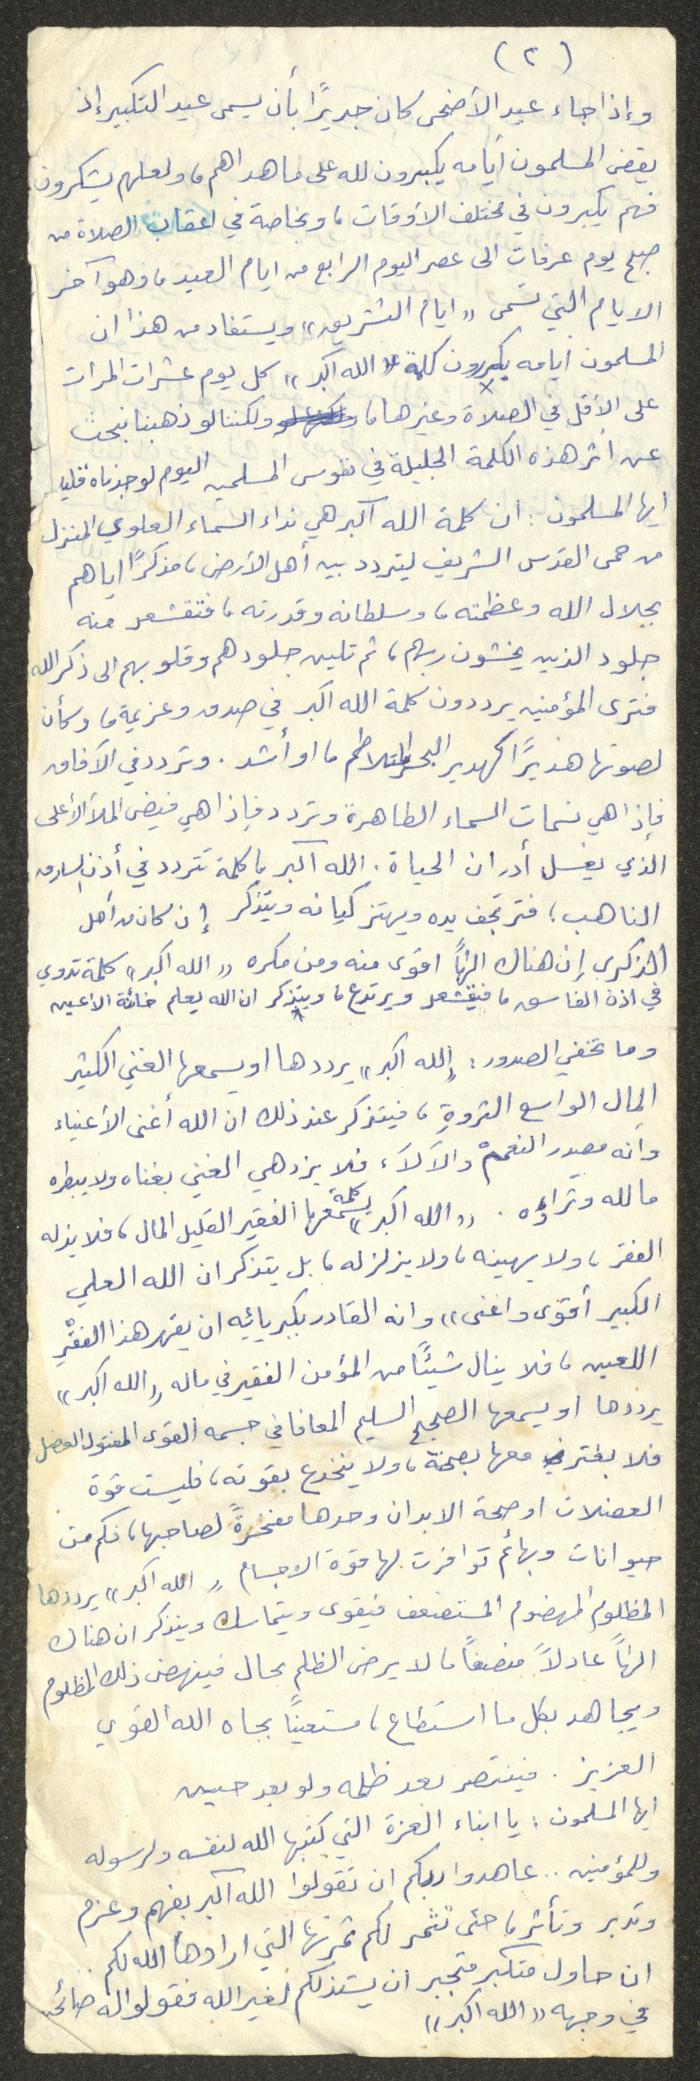 (٢)
وإذا جاء عيد الأضحى كان جديرًا بأن يسمى عيد التكبير إذ
يقضى المسلمون أيامه يكبرون لله على ما هداهم، ولعلهم يشكرون
فهم يكبرون في مختلف الأوقات، وبخاصة في اعقاب الصلاة من
صبح يوم عرفات الى عصر اليوم الرابع من ايام العيد، وهو آخر
الايام التي تسمى «ايام التشريق» ويستفاد من هذا ان
المسلمون ايامه يكبرون كلمة «الله اكبر» كل يوم عشرات المرات
على الأقل في الصلاة وغيرها، ولكننا لو ذهبنا نبحث
عن أثر هذه الكلمة الجليلة في نفوس المسلمين اليوم لوجدناه قليلا
ايها المسلمون: ان كلمة الله آكبر هي نداء السماء العلوي المنزل
من حمى القدس الشريف ليتردد بين أهل الأرض، مذكرًا اياهم
بجلال الله وعظمته، وسلطانه وقدرته، فتقشعر منه
جلود الذين يخشون ربهم، ثم تلين جلودهم وقلوبهم الى ذكر الله
فترى المؤمنين يرددون كلمة الله اكبر في صدق وعزيمة، وكأن
لصوتها هديرًا كهدير البحر المتلاطم، او أشد. وتردد في الآفاق
فإذا هي نسمات السماء الطاهرة وتردد فإذا هي فيض الملأ الأعلى
الذي يغسل أدران الحياة. الله آكبر يا كلمة تتردد في أذن السارق
الناهب؛ فترتجف يده ويهتز كيانه ويتذكر إن كان من أهل
الذكرى إن هناك الهاً اقوى منه ومن مكره «الله اكبر» كلمة تدوي
في اذن الفاسق، فيقشعر ويرتدع، ويتذكر ان الله يعلم خائنة الأعين
وما تخفي الصدور: «الله اكبر» يرددها او يسمعها الغني الكثير
المال الواسع الثروة، فيتذكر عند ذلك ان الله أغنى الأغنياء
وأنه مصدر النعم والآلاء فلا يزدهي الغني بغناه ولا يبطره
ماله وثراؤه. «الله اكبر» كلمة يسمعها الفقير القليل المال، فلا يذله
الفقر، ولا يهينه، ولا يزلزله، بل يتذكر ان الله العلي
الكبير أقوى واغنى» وانه القادر بكبريائيه ان يقهر هذا الفقر
اللعين، فلا ينال شيئًا من المؤمن الفقير في ماله «الله اكبر»
يرددها او يسمعها الصحيح السليم المعافا في جسمه القوى المفتول العضل
فلا يغتر معها بصحة، ولا ينخدع بقوته، فليست قوة
العضلات او صحة الابدان وحدها مفخرةً لصاحبها، فكم من
حيوانات وبهائم توافرت لها قوة الاجسام «الله اكبر» يرددها
المظلوم المهضوم المستضعف فيقوى ويتماسك ويتذكر ان هناك
الهاً عادلاً منصفاً، لا يرضى الظلم بحال فينهض ذلك المظلوم
ويجاهد بكل ما استطاع، مستعيناً بجاه الله القوي
العزيز. فينتصر بعد ظلمه ولو بعد حين
ايها المسلمون: يا ابناء العزة التي كتبها الله لنفسه ولرسوله
وللمؤمنين.. عاهدوا ربكم ان تقولوا الله آكبر بفهم وعزم
وتدبر وتأثر، حتى تثمر لكم ثمرتها التي ارادها الله لكم.
ان حاول متكبر متجبر ان يستذلكم لغير الله فقولوا له
في وجهه «الله اكبر»